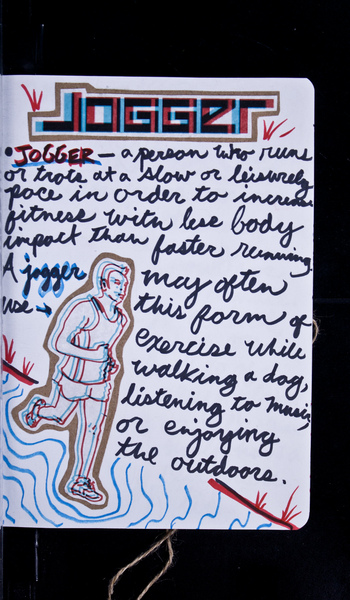 JOGGER
• JOGGER — a person who runs
or trots at a slow or leisurely
pace in order to increase
fitness with less body
impact than faster running.
A jogger may often
use → this form of
exercise while
walking a dog,
listening to music,
or enjoying
the outdoors.